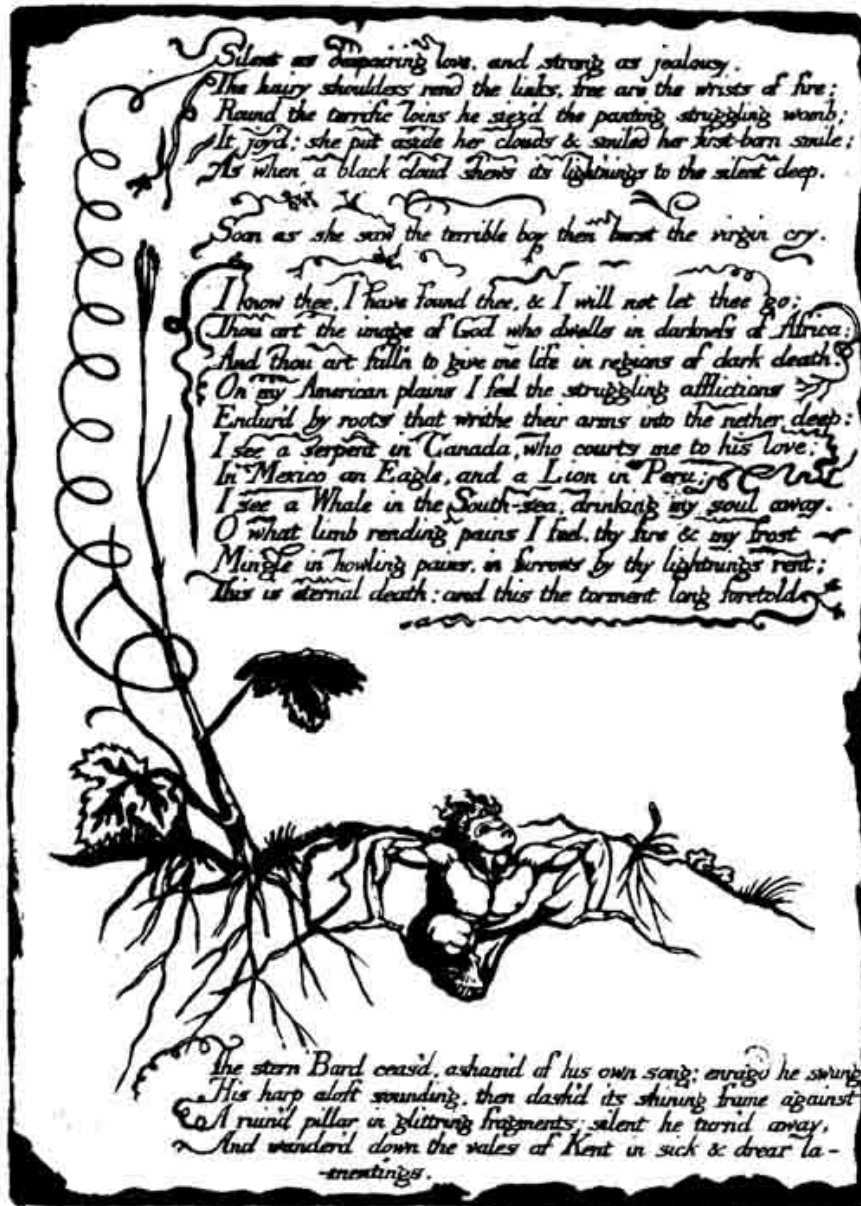 Silent as despairing love, and strong as jealousy.
The hairy shoulders rend the links, free are the wrists of fire;
Round the terrific loins he siez'd the panting struggling womb;
It joy'd: she put aside her clouds & smiled her first-born smile;
As when a black cloud shews its lightnings to the silent deep.
Soon as she saw the terrible boy then burst the virgin cry.
I know thee, I have found thee, & I will not let thee go;
Thou art the image of God who dwells in darkness of Africa;
And thou art fall'n to give me life in regions of dark death.
On my American plains I feel the struggling afflictions
Endur'd by roots that writhe their arms into the nether deep:
I see a serpent in Canada, who courts me to his love;
In Mexico an Eagle, and a Lion in Peru;
I see a Whale in the South-sea, drinking my soul away.
O what limb rending pains I feel, thy fire & my frost
Mingle in howling pains, in furrows by thy lightnings rent;
This is eternal death; and this the torment long foretold.
The stern Bard ceas'd, asham'd of his own song; enrag'd he swung
His harp aloft sounding, then dash'd its shining frame against
A ruin'd pillar in glittring fragments; silent he turn'd away,
And wander'd down the vales of Kent in sick & drear la-
-mentings.